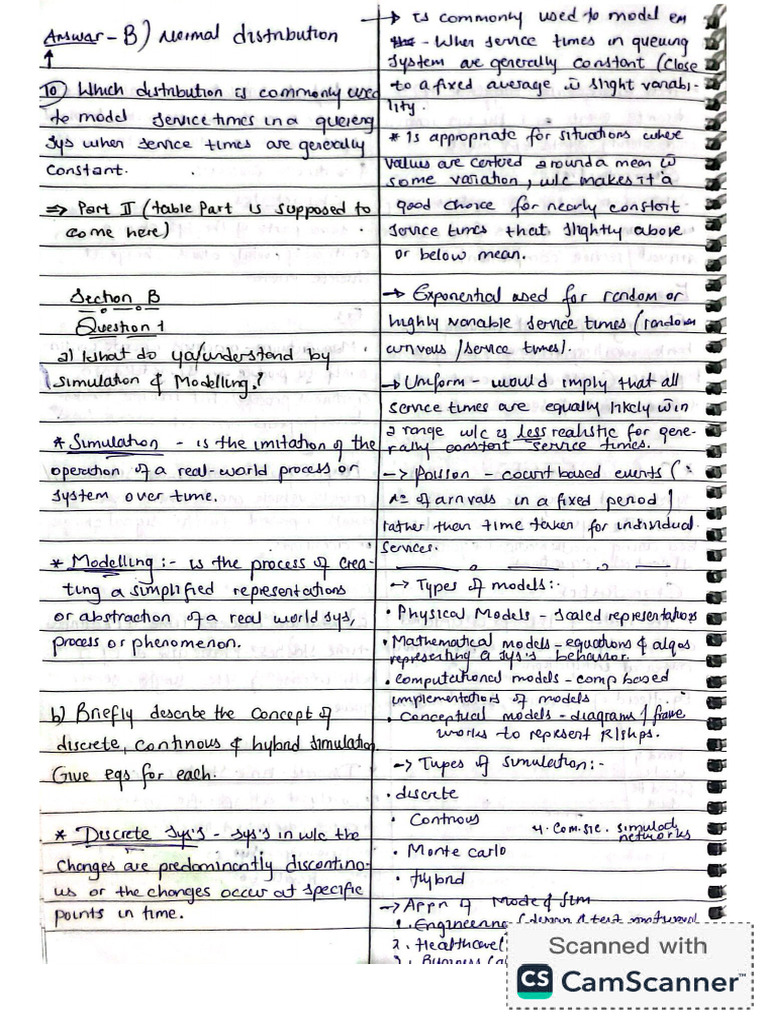 Answar - B) Normal distribution
10) Which distribution is commonly used
to model service times in a quereng
sys when service times are generally
constant.
⇒ Part II (table Part is supposed to
come here)
Section B
Question 1
a) What do you understand by
simulation & Modelling?
* Simulation - is the imitation of the
operation of a real-world process or
system over time.
* Modelling :- is the process of crea-
ting a simplified representations
or abstraction of a real world sys,
process or phenomenon.
b) Briefly describe the concept of
discrete, continous & hybrid simulation.
Give egs for each.
* Discrete sys's - sys's in w/c the
changes are predominantly discontino-
us or the changes occur at specific
points in time.
→ Is commonly used to model
- When service times in queuing
system are generally constant (close
to a fixed average w slight variabi-
lity.
* Is appropriate for situations where
values are centred around a mean w
some variation, w/c makes it a
good choice for nearly constant
service times that slightly above
or below mean.
→ Exponential used for random or
highly variable service times (random
arrivals / service times).
→ Uniform - would imply that all
service times are equally likely w/in
a range w/c is less realistic for gene-
rally constant service times.
→ Poisson - count based events (:
of arrivals in a fixed period)
rather than time taken for individual
services.
→ Types of models:-
• Physical Models - Scaled representations
• Mathematical models - equations & algos
representing a sys's behavior.
• computational models - comp based
implementations of models
• Conceptual models - diagrams / frame
works to represent R/ships.
→ Types of simulation:-
• discrete
• Continous
4. Com. sic. simulach
networks
• Monte Carlo
• Hybrid
→ Appn of Mode & sim
1. Engineering (design & test
2. Healthcare (
3. Business (
Scanned with
CS CamScanner™